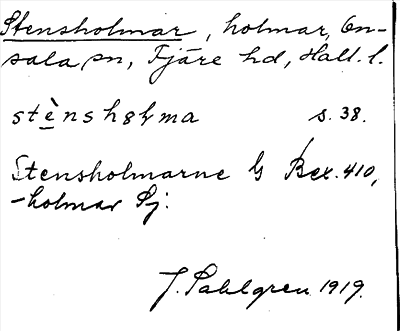 Stensholmar, holmar, On-
sala sn, Fjäre hd, Hall. l.
stènshɵɫma s. 38.
Stensholmarne G Bex. 410,
-holmar Sj.
J. Sahlgren 1919.